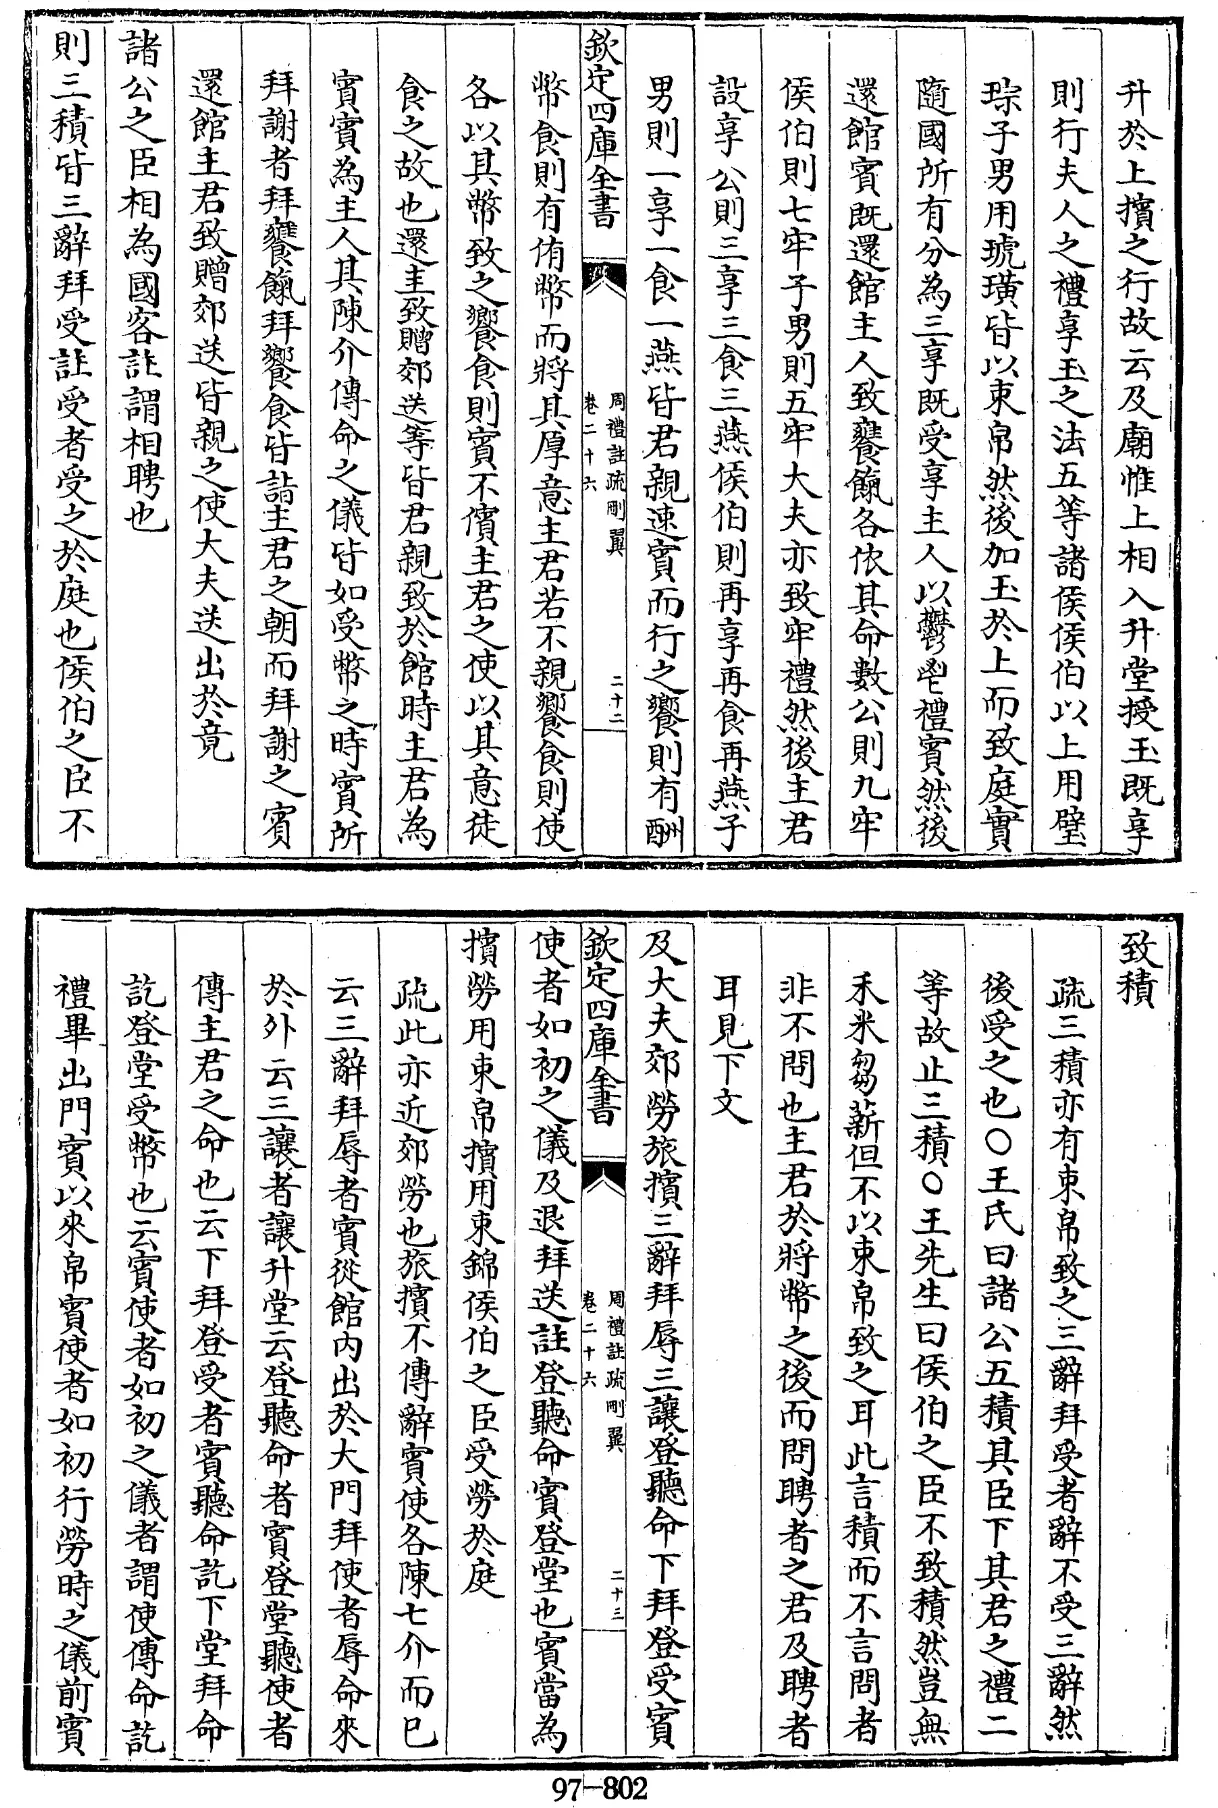 升於上擯之行故云及廟惟上相入升堂授玉既享
則行夫人之禮享玉之法五等諸侯侯伯以上用璧
琮子男用琥璜皆以束帛然後加玉於上而致庭實
隨國所有分為三享既受享主人以鬱鬯禮賓然後
還館賓既還館主人致饔餼各依其命數公則九牢
侯伯則七牢子男則五牢大夫亦致牢禮然後主君
設享公則三享三食三燕侯伯則再享再食再燕子
男則一享一食一燕皆君親速賓而行之饗則有酬
欽定四庫全書
周禮註疏刪翼
卷二十六
二十二
幣食則有侑幣而將其厚意主君若不親饗食則使
各以其幣致之饗食則賓不儐主君之使以其意徒
食之故也還圭致贈郊送等皆君親致於館時主君為
賓賓為主人其陳介傳命之儀皆如受幣之時賓所
拜謝者拜饔餼拜饗食皆詣主君之朝而拜謝之賓
還館主君致贈郊送皆親之使大夫送出於竟
諸公之臣相為國客註謂相聘也
則三積皆三辭拜受註受者受之於庭也侯伯之臣不
致積
疏三積亦有束帛致之三辭拜受者辭不受三辭然
後受之也○王氏曰諸公五積其臣下其君之禮二
等故止三積○王先生曰侯伯之臣不致積然豈無
禾米芻薪但不以束帛致之耳此言積而不言問者
非不問也主君於將幣之後而問聘者之君及聘者
耳見下文
及大夫郊勞旅擯三辭拜辱三讓登聽命下拜登受賓
欽定四庫全書
周禮註疏刪翼
卷二十六
二十三
使者如初之儀及退拜送註登聽命賓登堂也賓當為
擯勞用束帛擯用束錦侯伯之臣受勞於庭
疏此亦近郊勞也旅擯不傳辭賓使各陳七介而已
云三辭拜辱者賓從館內出於大門拜使者辱命來
於外云三讓者讓升堂云登聽命者賓登堂聽使者
傳主君之命也云下拜登受者賓聽命訖下堂拜命
訖登堂受幣也云賓使者如初之儀者謂使傳命訖
禮畢出門賓以來帛賓使者如初行勞時之儀前賓
97-802